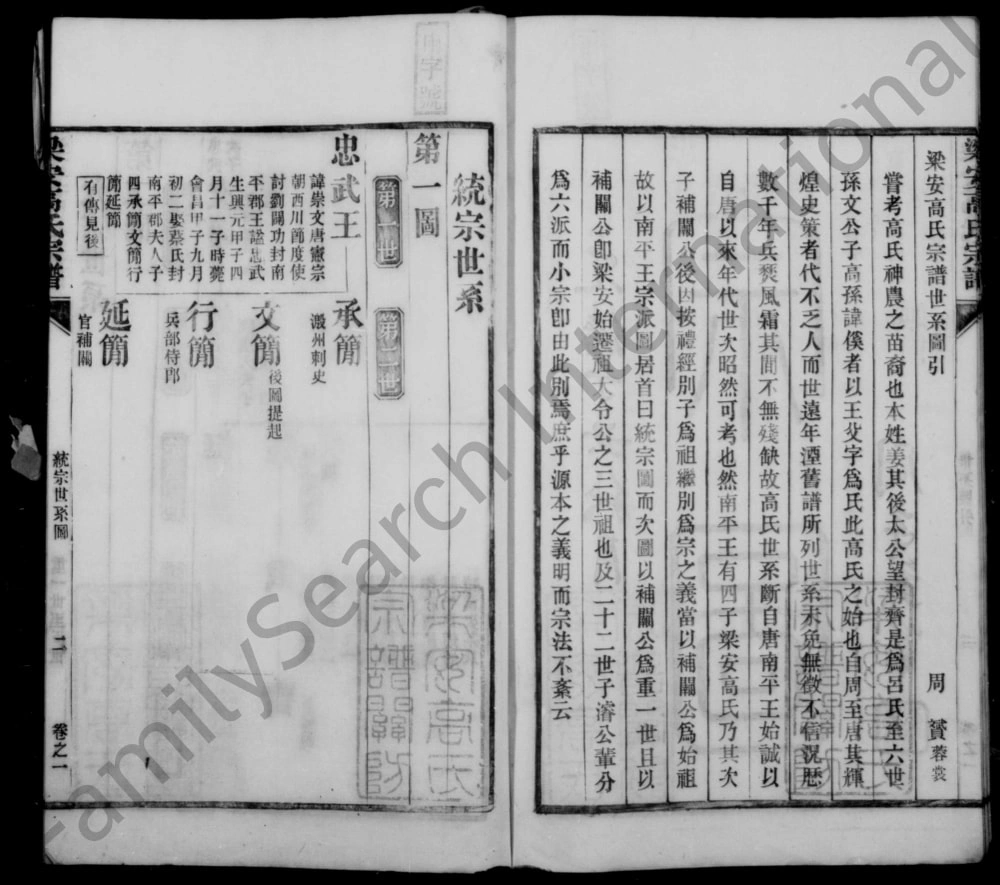 梁安高氏宗譜
梁安高氏宗譜世系圖引
周 贇 蓉裳
嘗考高氏神農之苗裔也本姓姜其後太公望封齊是爲呂氏至六世
孫文公子高孫諱傒者以王父字爲氏此高氏之始也自周至唐其輝
煌史策者代不乏人而世遠年湮舊譜所列世系未免無徵不信況歷
數千年兵燹風霜其間不無殘缺故高氏世系斷自唐南平王始誠以
自唐以來年代世次昭然可考也然南平王有四子梁安高氏乃其次
子補闕公後因按禮經別子爲祖繼別爲宗之義當以補闕公爲始祖
故以南平王宗派圖居首曰統宗圖而次圖以補闕公爲重一世且以
補闕公卽梁安始遷祖大令公之三世祖也及二十二世子濬公輩分
爲六派而小宗卽由此別焉庶乎源本之義明而宗法不紊云
統宗世系
第一圖
第一世
第二世
忠武王
諱崇文唐憲宗
朝西川節度使
討劉闢功封南
平郡王諡忠武
生興元甲子四
月十一子時薨
會昌甲子九月
初二娶蔡氏封
南平郡夫人子
四承簡文簡行
簡延簡
有傳見後
承簡
溵州刺史
文簡
後圖提起
行簡
兵部侍郎
延簡
官補闕
梁安高氏宗譜
統宗世系圖
二
卷之一
字號
梁安高氏
宗譜關防
FamilySearch International